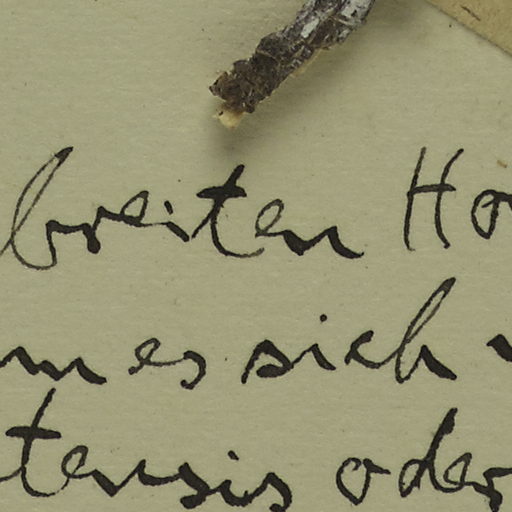 breiten Ho
m es sich
tensis oder